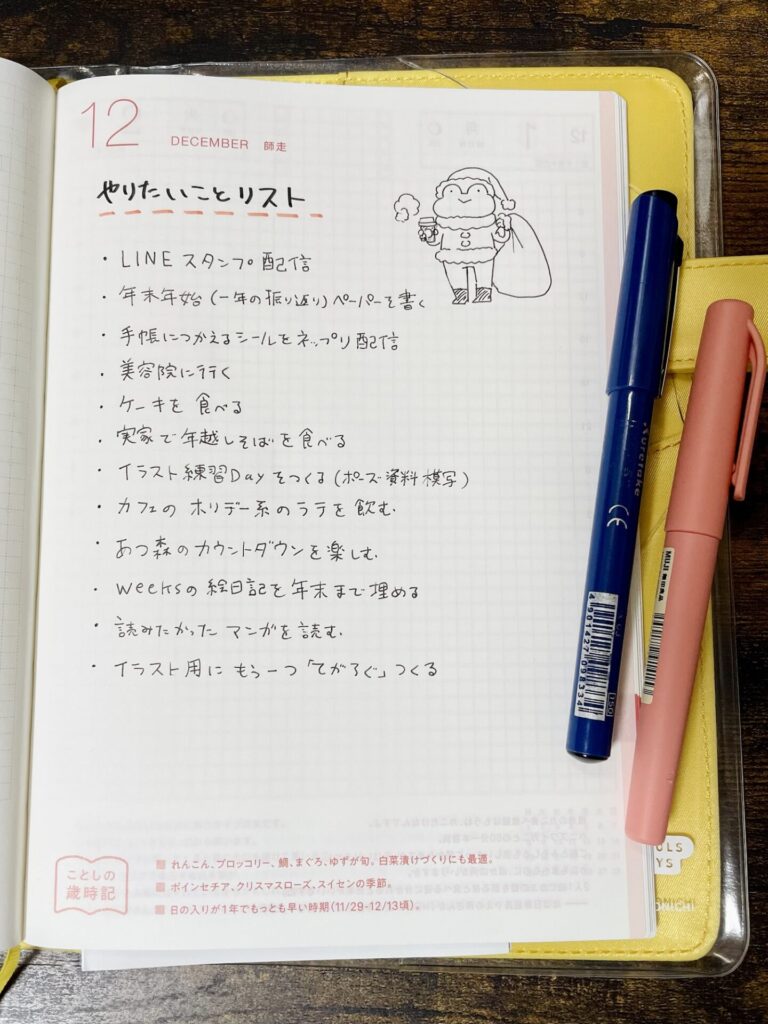 12
DECEMBER 師走
やりたいことリスト
・LINE スタンプ 配信
・年末年始 (一年の振り返り) ペーパーを書く
・手帳につかえるシールをネップリ配信
・美容院に行く
・ケーキを 食べる
・実家で年越しそばを食べる
・イラスト練習Dayをつくる (ポーズ資料 模写)
・カフェの ホリデー系のラテを飲む.
・あつ森のカウントダウンを楽しむ.
・weeksの絵日記を年末まで埋める
・読みたかった マンガを読む.
・イラスト用に もう一つ「てがろぐ」つくる
ことしの
歳時記
■ れんこん、ブロッコリー、鯛、まぐろ、ゆずが旬。白菜漬けづくりにも最適。
■ ポインセチア、クリスマスローズ、スイセンの季節。
■ 日の入りが1年でもっとも早い時期(11/29-12/13頃)。
kuretake
CE
4901427098334
MUJI 無印良品
ULS
YS
ONICHI